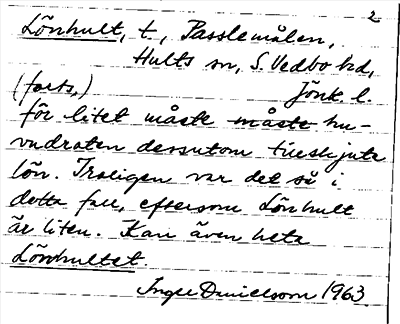 2
Lönhult, t., Passlemålen,
Hults sn, S. Vedbo hd,
(forts.) Jönk. l.
för litet måste måste hu-
vudraten dessutom tillskjuta
lön. Troligen var det så i
detta fall, eftersom Lönhult
är liten. Kan även heta
Lönhultet.
Inger Danielsson 1963